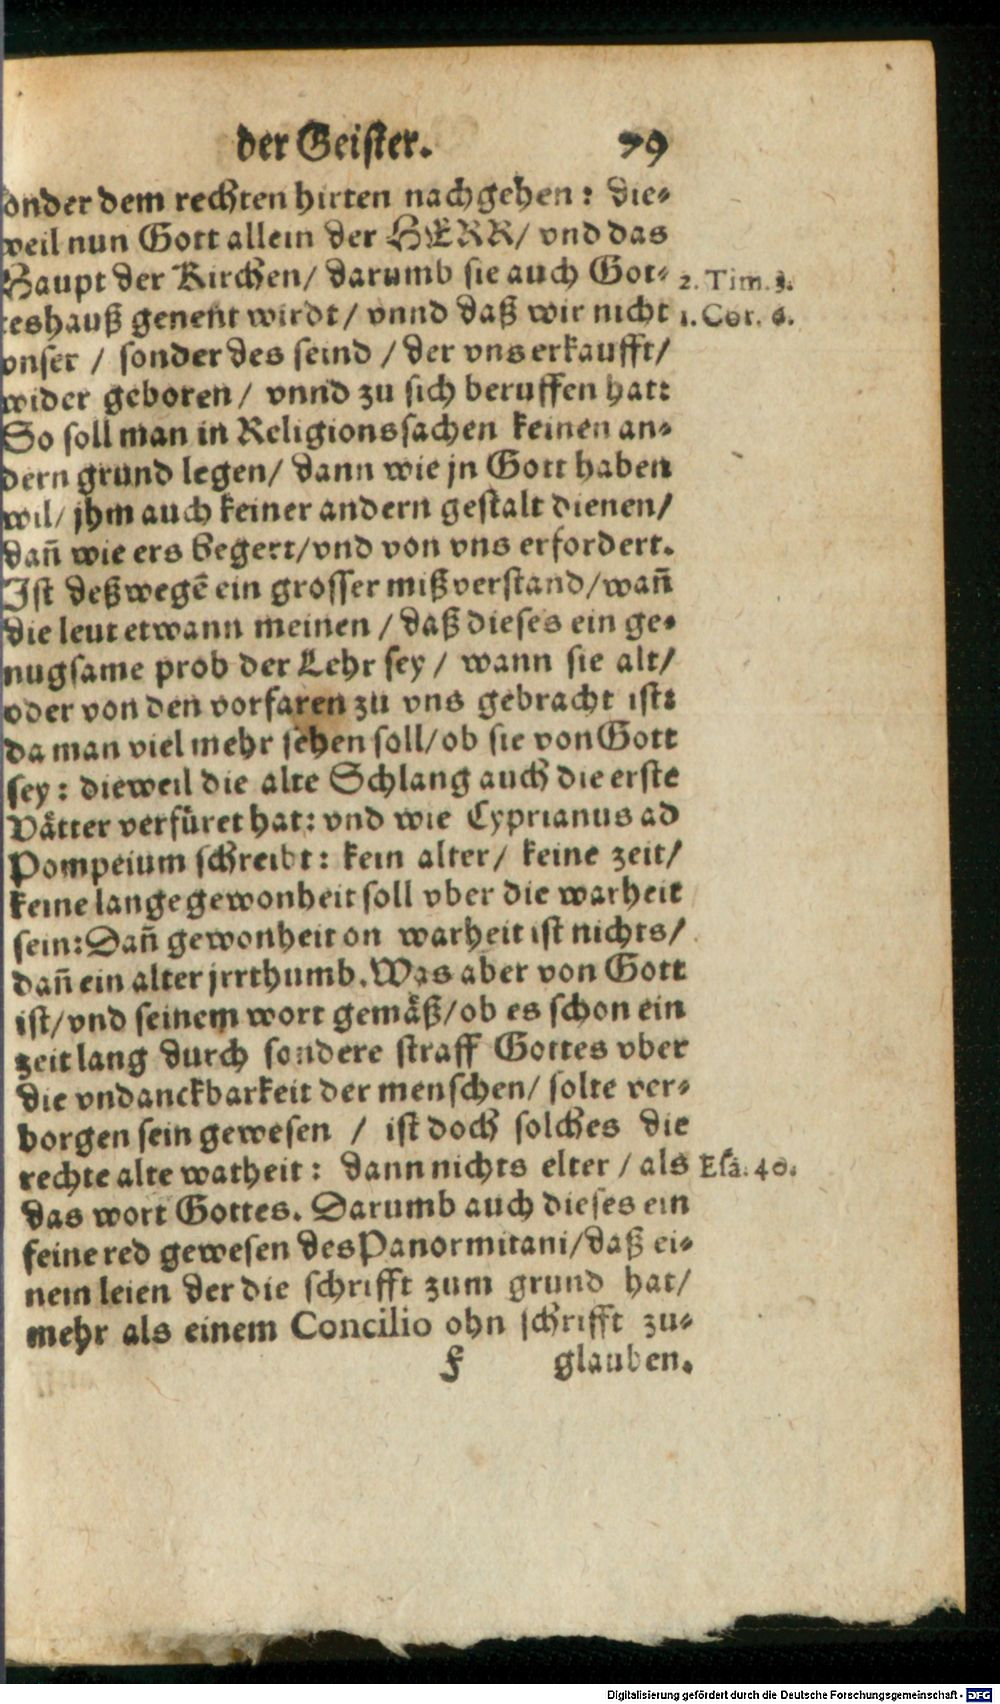 der Geister. 79
onder dem rechten hirten nachgehen: die-
weil nun Gott allein der HERR/ vnd das
Haupt der Kirchen/ darumb sie auch Got- 2. Tim. 3.
teshauß genent wirdt/ vnnd daß wir nicht 1. Cor. 6.
vnser / sonder des seind / der vns erkaufft/
wider geboren/ vnnd zu sich beruffen hat:
So soll man in Religionssachen keinen an-
dern grund legen/ dann wie jn Gott haben
wil/ jhm auch keiner andern gestalt dienen/
dañ wie ers begert/ vnd von vns erfordert.
Ist deßwegẽ ein grosser mißverstand/ wañ
die leut etwann meinen / daß dieses ein ge-
nugsame prob der Lehr sey / wann sie alt/
oder von den vorfaren zu vns gebracht ist:
da man viel mehr sehen soll/ ob sie von Gott
sey: dieweil die alte Schlang auch die erste
Vätter verfüret hat: vnd wie Cyprianus ad
Pompeium schreibt: kein alter/ keine zeit/
keine lange gewonheit soll vber die warheit
sein: Dañ gewonheit on warheit ist nichts/
dañ ein alter jrrthumb. Was aber von Gott
ist/ vnd seinem wort gemäß/ ob es schon ein
zeit lang durch sondere straff Gottes vber
die vndanckbarkeit der menschen/ solte ver-
borgen sein gewesen / ist doch solches die
rechte alte watheit: dann nichts elter / als Esa. 40.
das wort Gottes. Darumb auch dieses ein
feine red gewesen des Panormitani/ daß ei-
nem leien der die schrifft zum grund hat/
mehr als einem Concilio ohn schrifft zu-
F glauben.
Digitalisierung gefördert durch die Deutsche Forschungsgemeinschaft - DFG